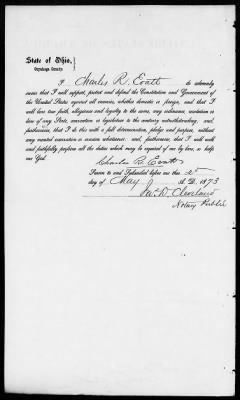 State of Ohio,
Cuyahoga County
I Charles R. Evatt do solemnly
swear that I will support, protect and defend the Constitution and Government of
the United States against all enemies, whether domestic or foreign, and that I
will bear true faith, allegiance and loyalty to the same, any ordinance, resolution or
law of any State, convention or legislature to the contrary notwithstanding, and,
furthermore, that I do this with a full determination, pledge and purpose, without
any mental reservation or evasion whatsoever, and, furthermore, that I will well
and faithfully perform all the duties which may be required of me by law, so help
me God.
Charles R. Evatt
Sworn to and Subscribed before me this 2d
day of May A.D. 1873
Jas. D. Cleveland
Notary Public